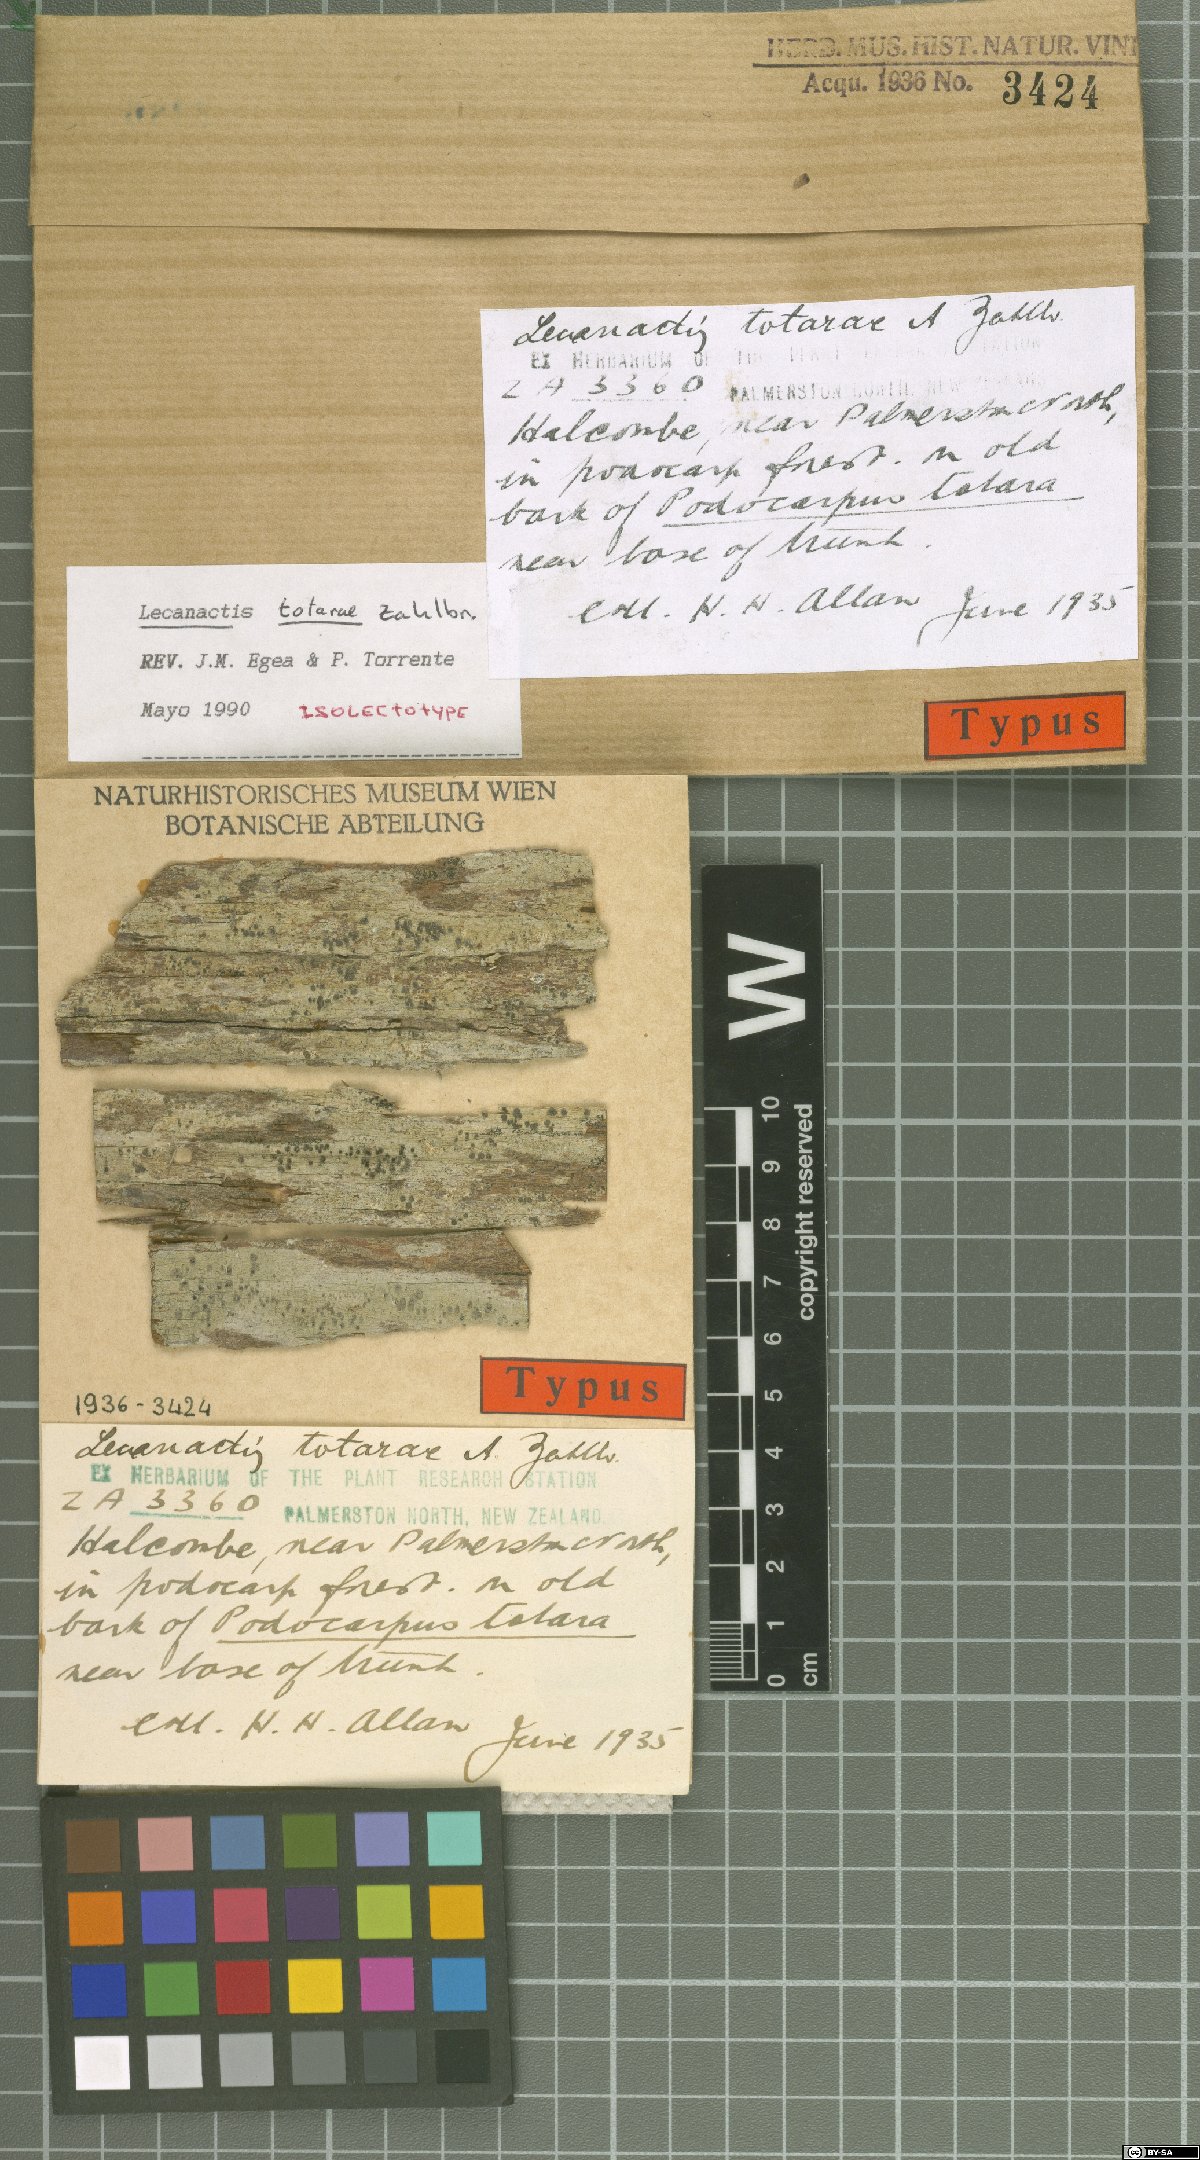 HERB. MUS. HIST. NATUR. VIN
Acqu. 1936 No. 3424
Lecanactis totarae A Zahlbr.
EX HERBARIUM OF THE STATION
ZA 3360 PALMERSTON NORTH, NEW ZEALAND
Halcombe, near Palmerston North,
in podocarp forest. on old
bark of Podocarpus totara
near base of trunk.
Coll. H. H. Allan June 1935
Lecanactis totarae Zahlbr.
REV. J.M. Egea & P. Torrente
Mayo 1990 ISOLECTOTYPE
Typus
NATURHISTORISCHES MUSEUM WIEN
BOTANISCHE ABTEILUNG
Typus
1936-3424
Lecanactis totarae A. Zahlbr.
EX HERBARIUM OF THE PLANT RESEARCH STATION
ZA 3360 PALMERSTON NORTH, NEW ZEALAND.
Halcombe, near Palmerston North,
in podocarp forest. on old
bark of Podocarpus totara
near base of trunk.
Coll. H. H. Allan June 1935
W
10
9
8
7
6
5
4
3
2
1
0
cm
copyright reserved
cc BY-SA